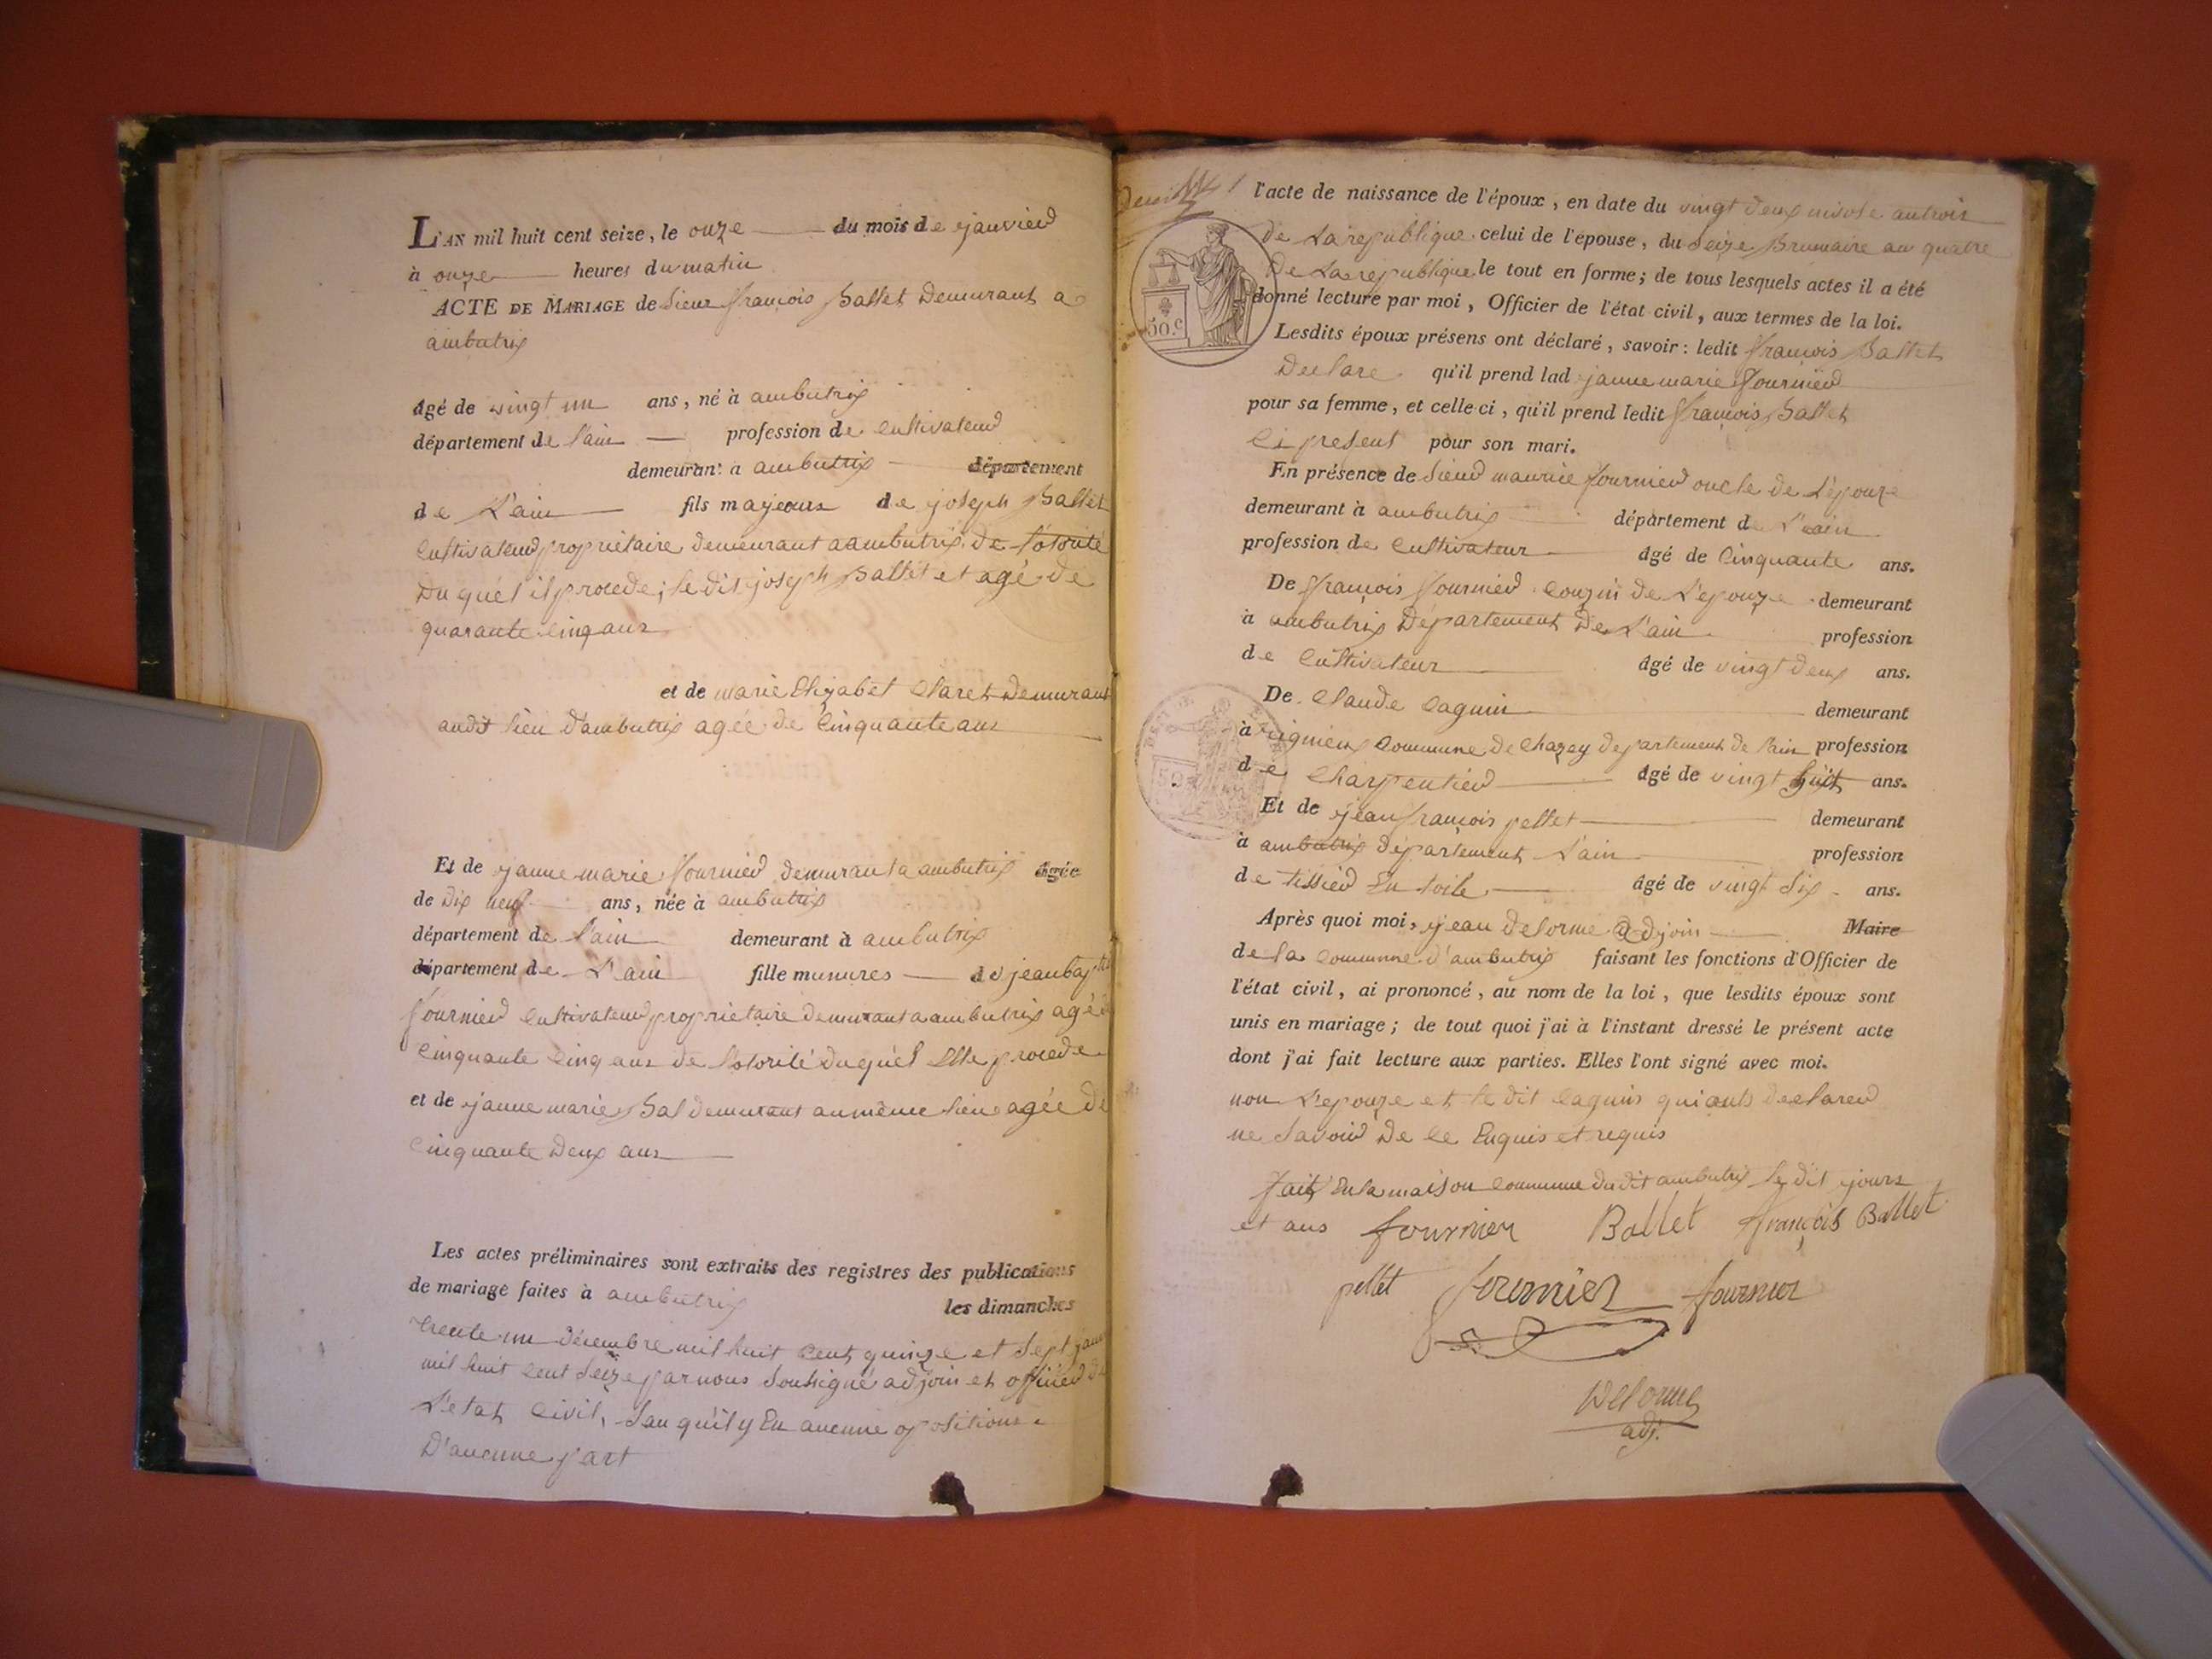 L'AN mil huit cent seize, le onze du mois de janvier
à onze heures du matin
ACTE DE MARIAGE de Sieur françois Ballet Demurant a
ambutrix
âgé de vingt un ans, né à ambutrix
département de l'ain profession de Cultivateur
demeurant à ambutrix département
de L'ain fils majeurs de joseph Ballet
Cultivateur propriétaire demeurant a ambutrix de l'otorité
Du quél il procede; le dit joseph Ballet et agé de
quarante cinq ans
et de marie Elizabet Claret Demurant
audit lieu d'ambutrix agée de Cinquante ans
Et de janne marie fournier demurant a ambutrix âgée
de Dix neuf ans, née à ambutrix
département de l'ain demeurant à ambutrix
département de L'ain fille munures de jean baptis
fournier Cultivateur proprietaire demurant a ambutrix agé de
Cinquante Cinq ans de l'otorité duquél Elle procede
et de janne marie Bal demurant au même lieu agée de
Cinquante Deux ans
Les actes préliminaires sont extraits des registres des publications
de mariage faites à ambutrix les dimanches
trente un Décembre mil huit Cent quinze et Sept janv
mil huit cent Seize par nous Soussigné adjoin et officier de
L'état Civil, San qu'il y Eu aucune opositions
D'aucune part
l'acte de naissance de l'époux, en date du vingt deux nivose an trois
de La republique celui de l'épouse, du Seize Brumaire an quatre
De La republique le tout en forme; de tous lesquels actes il a été
donné lecture par moi, Officier de l'état civil, aux termes de la loi.
50.c
Lesdits époux présens ont déclaré, savoir: ledit François Ballet
Declare qu'il prend lad janne marie Fournier
pour sa femme, et celle-ci, qu'il prend ledit François Ballet
Ci present pour son mari.
En présence de Sieur maurice fournier oncle de L'épouze
demeurant à ambutrix département de L'ain
profession de Cultivateur âgé de Cinquante ans.
De François Fournier Couzin de L'epouze demeurant
à ambutrix Département De L'ain profession
de Cultivateur âgé de vingt deux ans.
De Claude Caguin demeurant
à rignieux Commune de Chazey departement de l'ain profession
de Charpentier âgé de vingt huit ans.
Et de jean françois pellet demeurant
à ambutrix département L'ain profession
de tissier En toile âgé de vingt Six ans.
Après quoi moi, jean Delorme adjoin Maire
de la Commune d'ambutrix faisant les fonctions d'Officier de
l'état civil, ai prononcé, au nom de la loi, que lesdits époux sont
unis en mariage; de tout quoi j'ai à l'instant dressé le présent acte
dont j'ai fait lecture aux parties. Elles l'ont signé avec moi.
non L'epouze et le dit Caguin qui onts declarer
ne Savoir De ce Enquis et requis
Fait En la maison Commune dudit ambutrix le dit jours
et ans fournier Ballet françois Ballet
pellet fournier fournier
Delorme
adj.